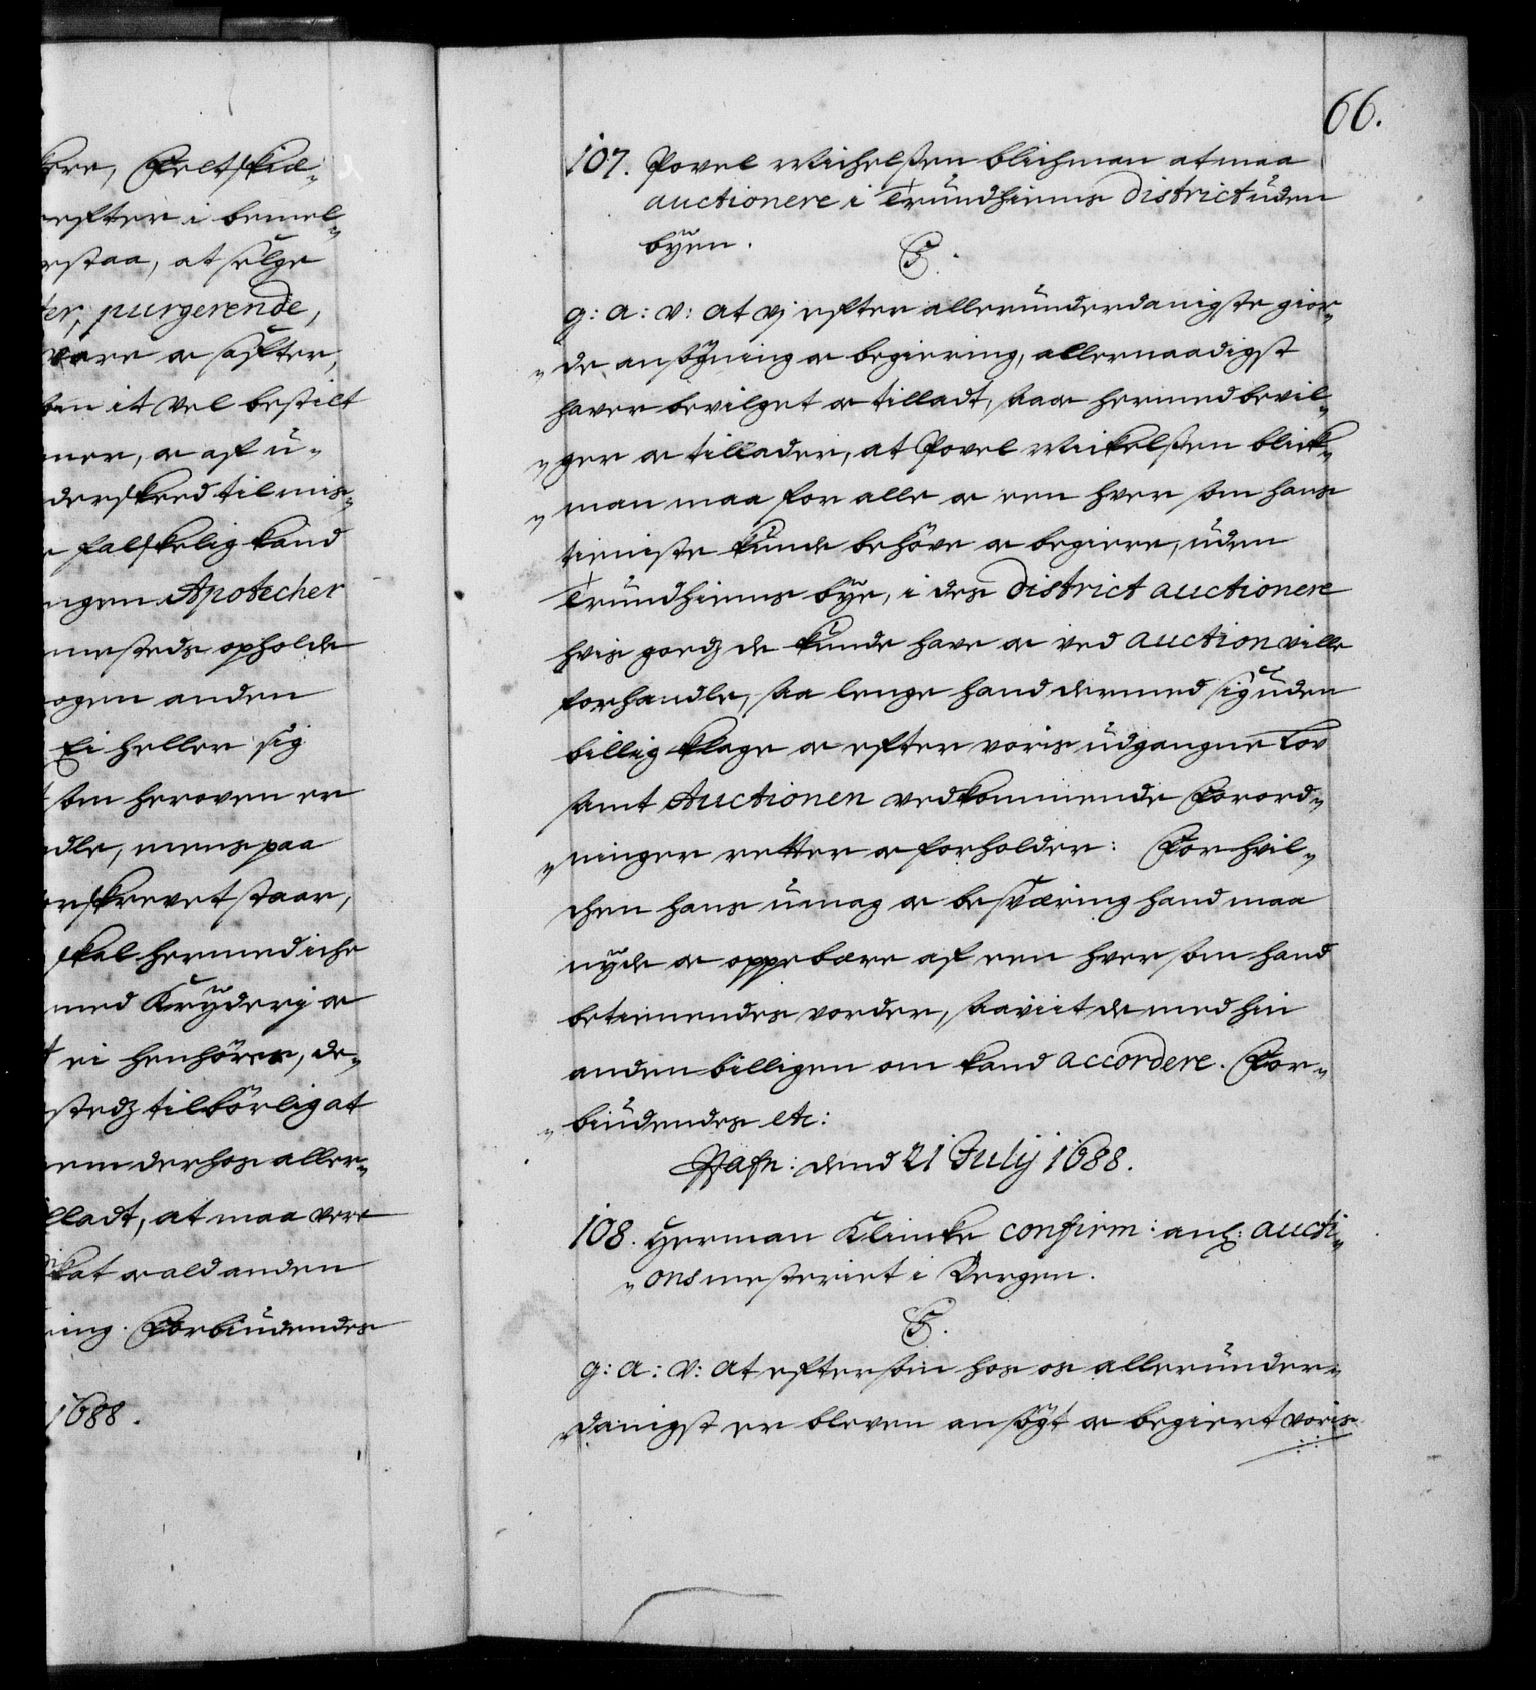 kere, Feltskiæ¬
efter i bemel¬
estaa, at selge
ter, purgerende,
vare oc Safter,
ben it vel bestilt
ner, oc af u¬
derskeed til mis¬
falskelig kand
ngen Apotecher
nesteds opholde
ogen anden
Ei heller sig
som heroven er
dle, mens paa
rskrevet staar,
skal hermed iche
med Krÿderj oc
ei henhörer, de¬
stedz tilbörlig at
em derhos aller¬
lladt, at maa vere
kat oc ald anden
ing. Forbiudendes
1688.
66.
107. Povel Michelßen Blichman at maa
auctionere i Trundhiems District uden
byen.
C5.
G: A: V: At Vj efter allerunderdanigste gior¬
de ansögning oc begiering, allernaadigst
haver bevilget oc tilladt, saa oc hermed bevil¬
ger oc tillader, at Povel Mikelßen Blick¬
man maa for alle oc een hver som hans
tieniste kunde behöve oc begiere, uden
Trundhiems bye, i des District auctionere
hvis goedz de kunde have oc ved auction ville
forhandle, saa lenge hand dermed sig uden
billig klage oc efter voris udgangne Lov
samt Auctionen vedkommende Forord¬
ninger retter oc forholder: For hvil¬
chen hans umag oc besværing hand maa
nyde oc oppebære af een hver som hand
betienendes vorder, saaviit de med hin
anden billigen om kand accordere. For¬
biudendes etc:
Hafn: dend 21 Julij 1688.
108. Herman Klincke confirm: anl: aucti¬
onsmesteriet i Bergen.
C5.
G: A: V: At eftersom hos os allerunder¬
danigst er bleven ansögt oc begiert voris